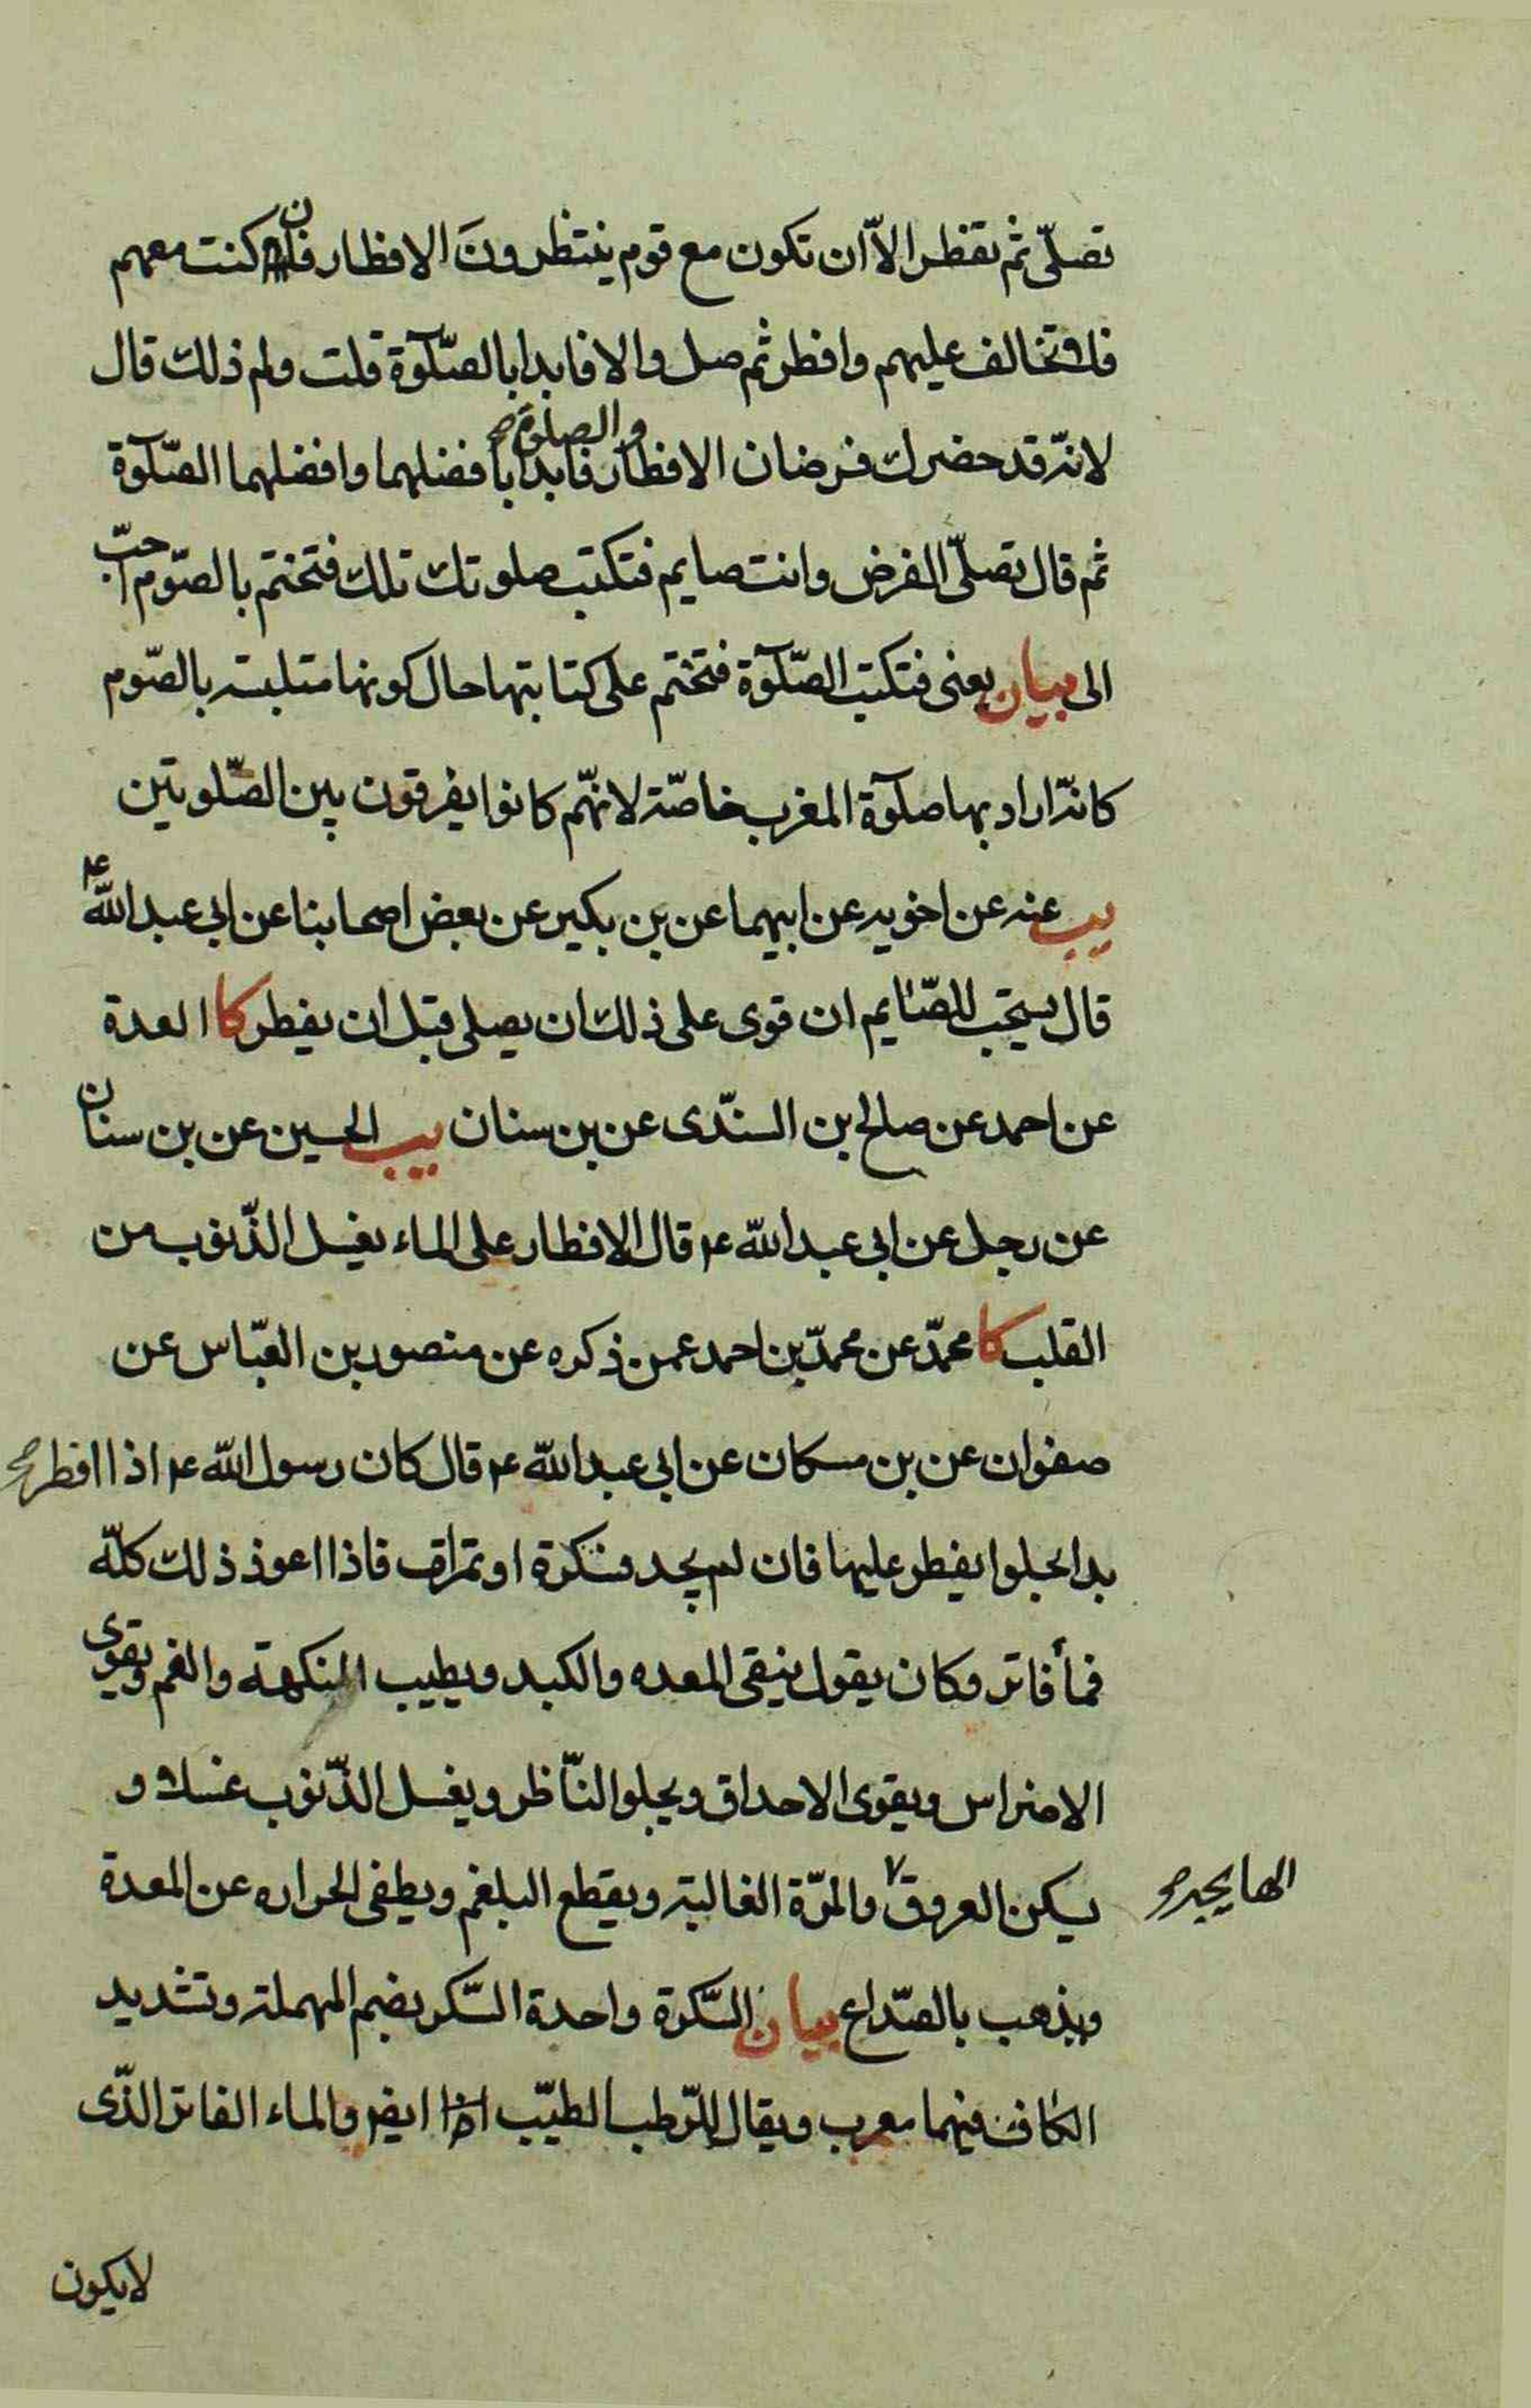 تصلّی ثم تفطر الاّ ان تکون مع قوم ینتظرونَ الافطار فان کنت معهم
فلا تخالف علیهم وافطر ثم صل والا فابدا بالصّلوٓة قلت ولم ذلك قال
لانّه قد حضرك فرضان الافطار والصلوة صح فابدا بافضلهما وافضلهما الصّلوٓة
ثم قال تصلّی الفرض وانت صایم فتکتب صلوتك تلك فتختم بالصّوم احبّ
الی بیان یعنی فتکتب الصّلوٓة فتختم علی کتابتها حال کونها متلبسه بالصّوم
کانّه اراد بها صلوٓة المغرب خاصّة لانهّم کانوا یفرقون بین الصّلوتین
یب عنه عن اخویه عن ابیهما عن بن بکیر عن بعض اصحابنا عن ابی عبد اللّه ع
قال یستحب للصّایم ان قوی علی ذلك ان یصلی قبل ان یفطر کا العدة
عن احمد عن صالح بن السنّدی عن بن سنان یب الحسین عن بن سنان
عن رجل عن ابی عبد اللّه ع قال الافطار علی الماء یغسل الذّنوب من
القلب کا محمّد عن محمّد بن احمد عمن ذکره عن منصور بن العبّاس عن
صفوان عن بن مسکان عن ابی عبد اللّه ع قال کان رسول اللّه ع اذا افطر صح
بدا بحلوا یفطر علیها فان لم یجد فسکرة او تمرات فاذا اعوذ ذلك کلّه
فمأ فاتر وکان یقول ینقی المعده والکبد ویطیب النکهة والفم ویقوی
الاضراس ویقوی الاحداق ویجلوا النّاظر ویغسل الذّنوب غسلا و
یسکن العروق والمرّة الغالبة ویقطع البلغم ویطفی الحراره عن المعدة
الهایجه صح
ویذهب بالصّداع بیان السّکرة واحدة السّکر بضم المهملة وتشدید
الکاف فیهما معرب ویقال للرّطب الطیّب ایضا والماء الفاتر الذّی
لایکون